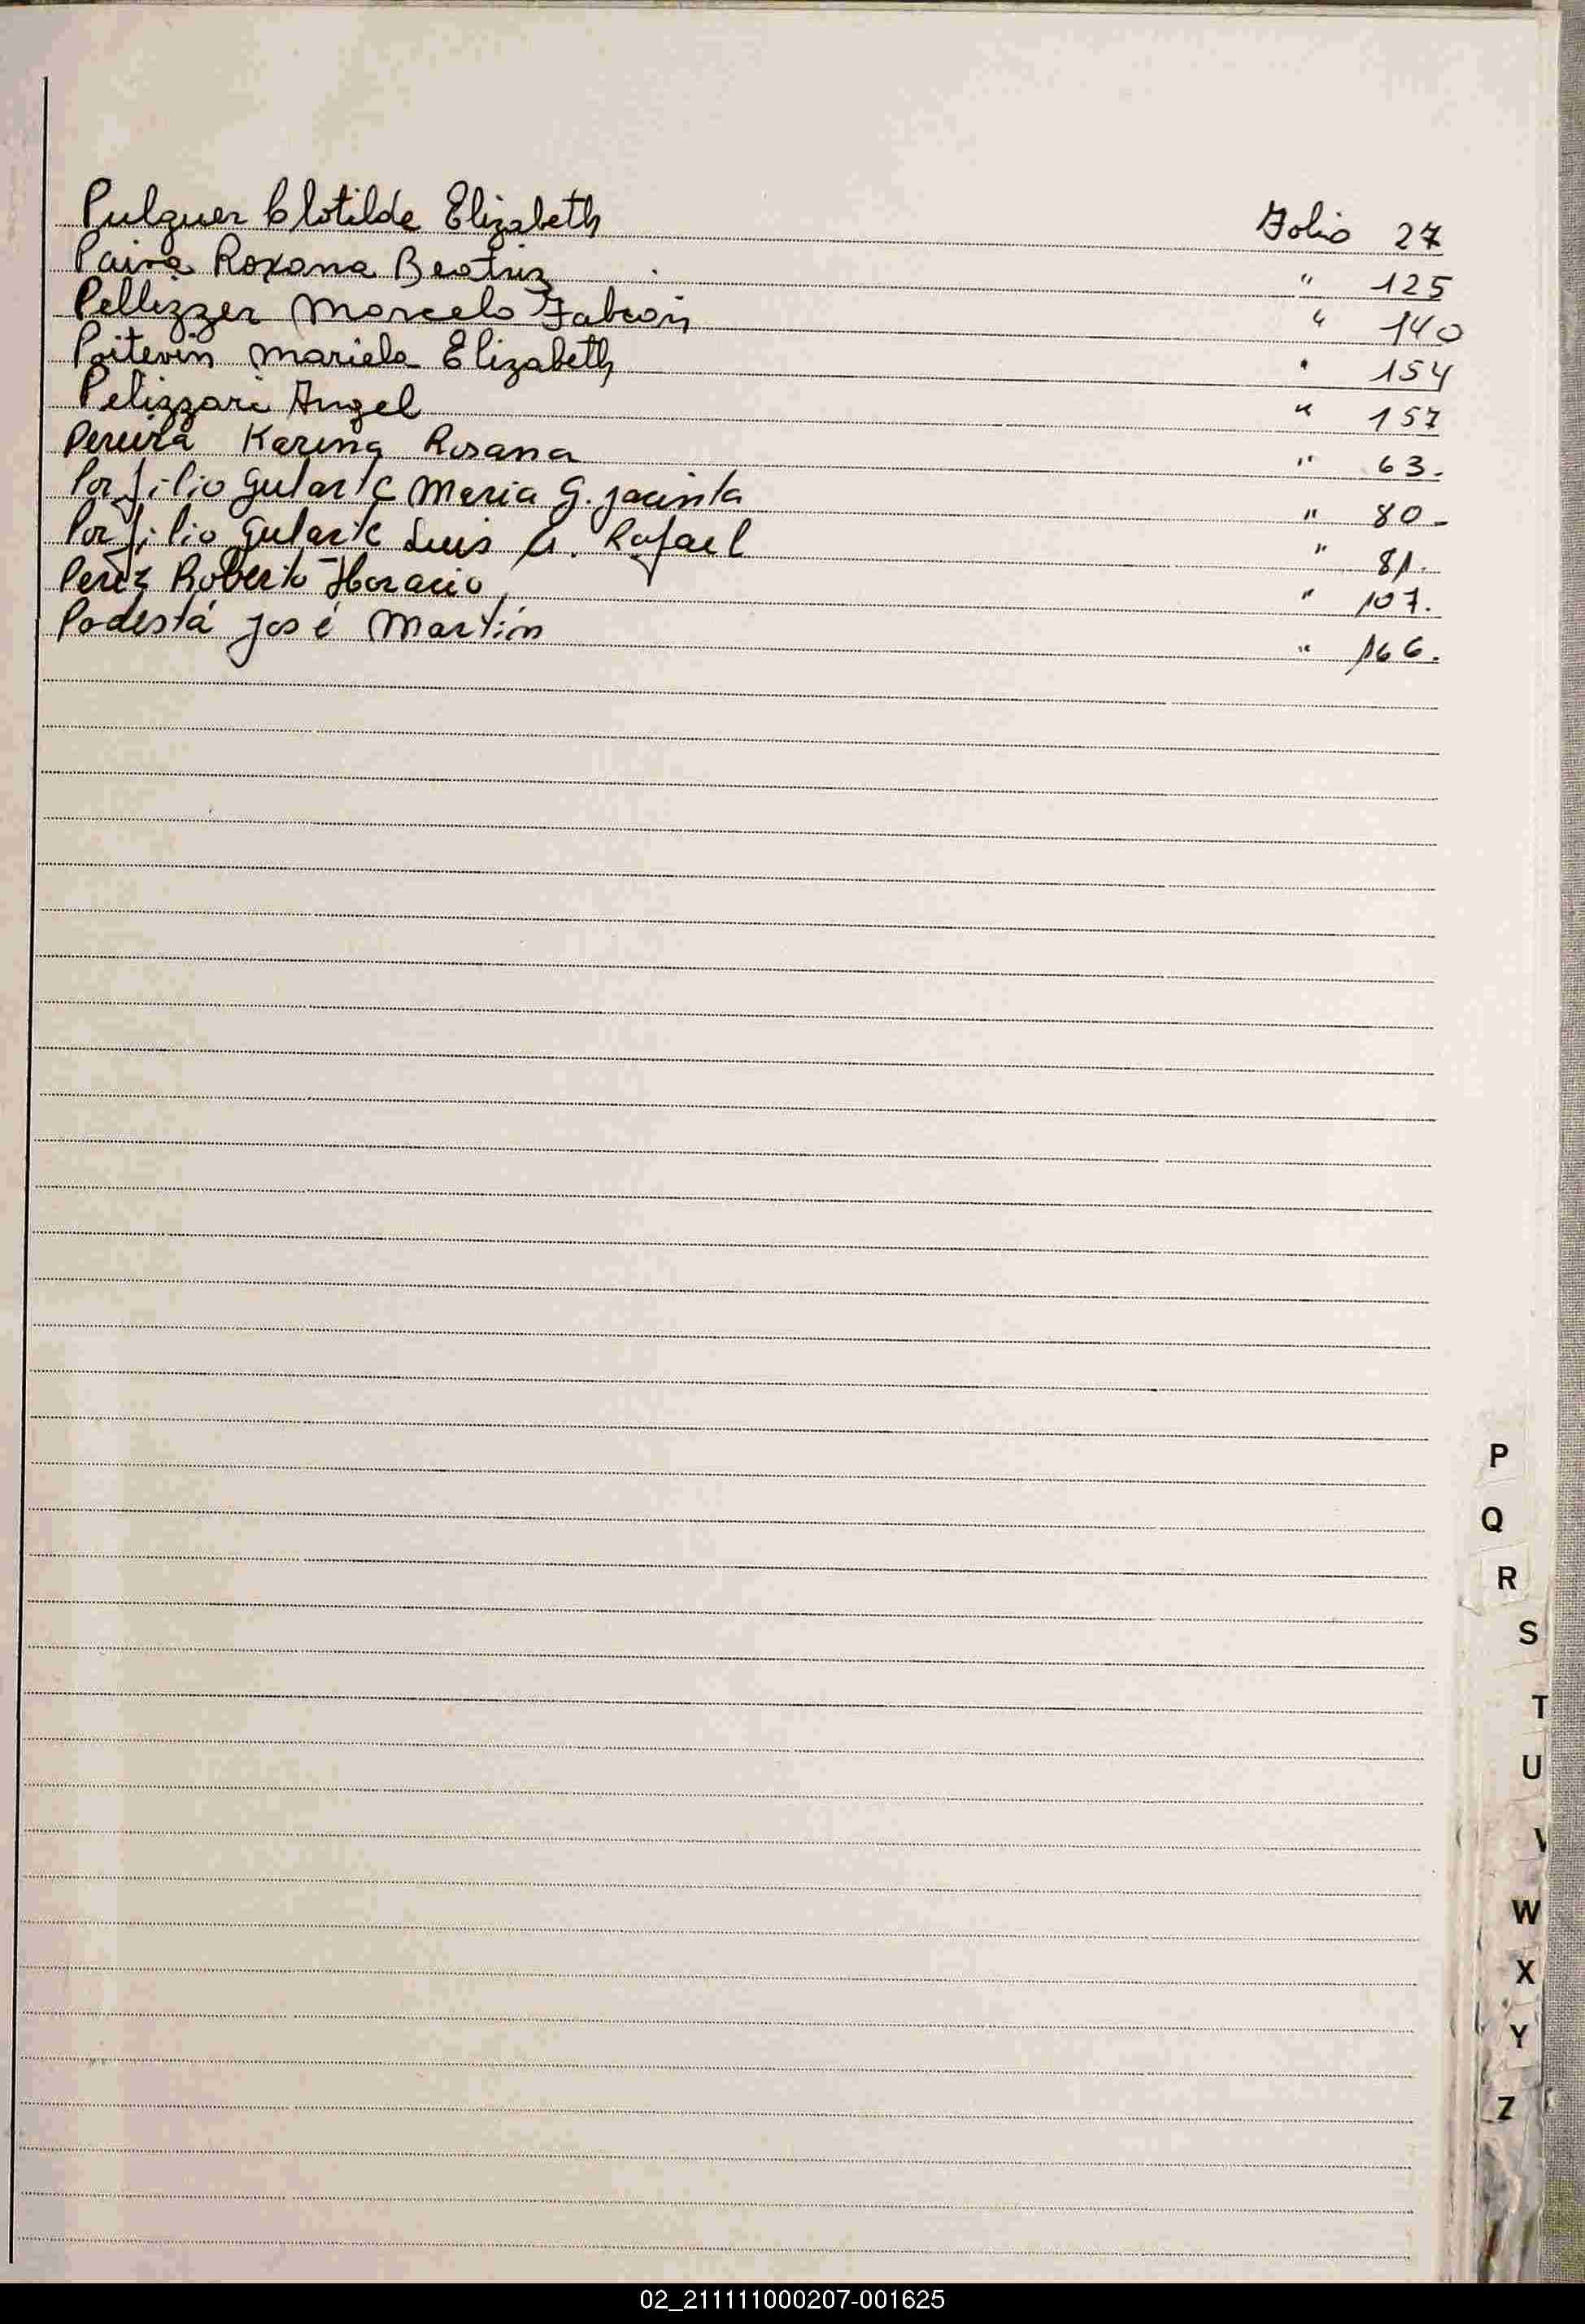 Pulguer Clotilde Elizabeth Folio 27
Paiva Roxana Beatriz " 125
Pellizzer Marcelo Fabian " 140
Poitevin Mariela Elizabeth " 154
Pelizzari Angel " 157
Pereira Karina Rosana " 63.
Porfilio Gularte Maria G. Jacinta " 80-
Porfilio Gularte Luis A. Rafael " 81.
Perez Roberto Horacio " 107.
Podestá José Martín " 166.
P
Q
R
S
T
U
V
W
X
Y
Z
02_211111000207-001625